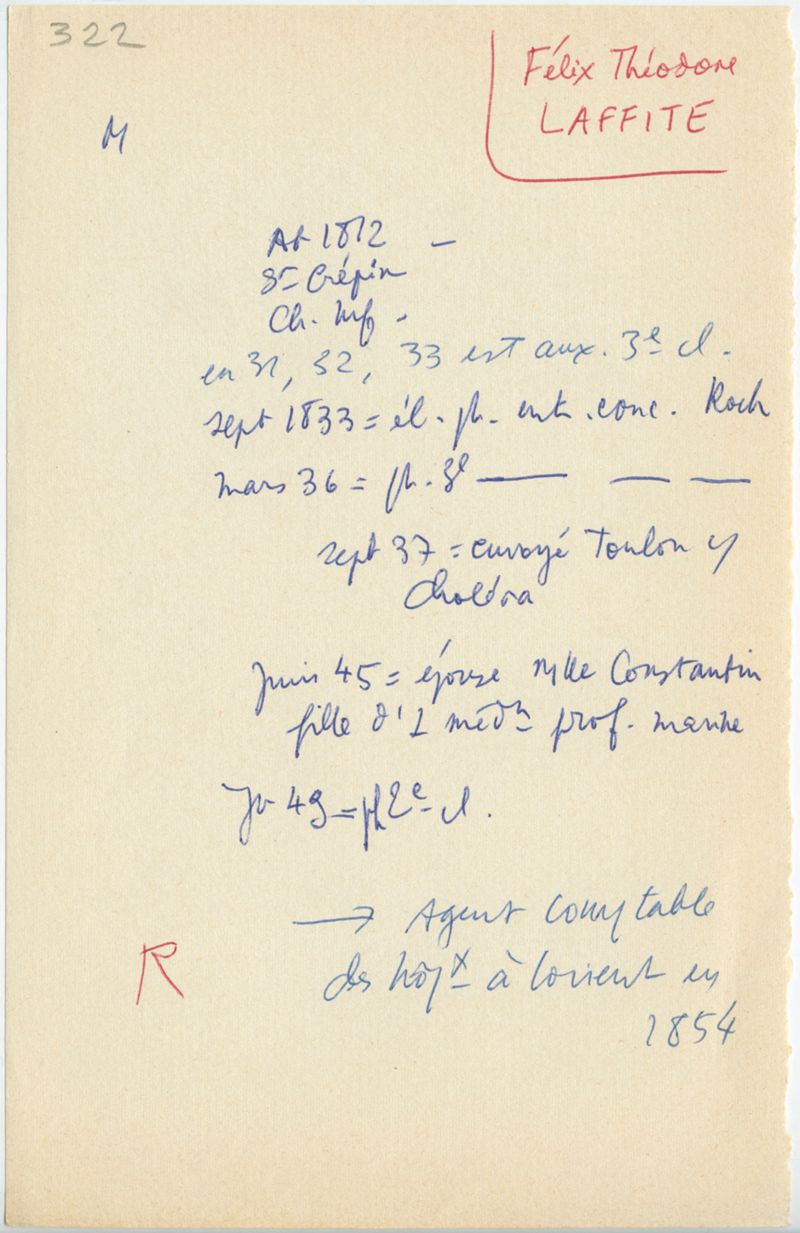 322
Félix Théodore
LAFFITE
M
At 1812 -
St Crépin
Ch. Inf.
en 31, 32, 33 est aux. 3e cl.
sept 1833 = él. ph. ent. conc. Roch
mars 36 = ph. 3e — — —
sept 37 = envoyé Toulon
Choléra
Juin 45 = épouse Mlle Constantin
fille d'1 médn prof. marine
Jr 49 = ph 2e cl.
→ Agent comptable
des hôpx à Lorient en
1854
R